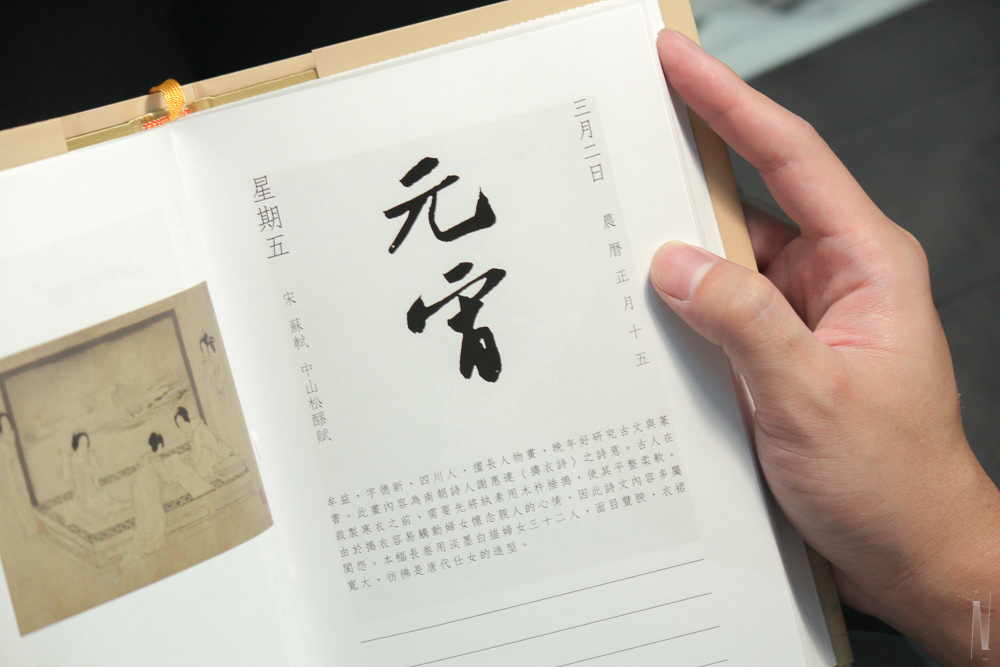 三月二日
農曆正月十五
元宵
星期五
宋 蘇軾 中山松醪賦
牟益，字德新，四川人，擅長人物畫，晚年好研究古文與篆
書。此畫內容為南朝詩人謝惠連〈擣衣詩〉之詩意。古人在
裁製寒衣之前，需要先將紈素用木杵捶搗，使其平整柔軟。
由於搗衣容易觸動婦女懷念親人的心情，因此詩文內容多屬
閨怨。本幅長卷用淡墨白描婦女三十二人，面目豐腴，衣裙
寬大，彷彿是唐代仕女的造型。